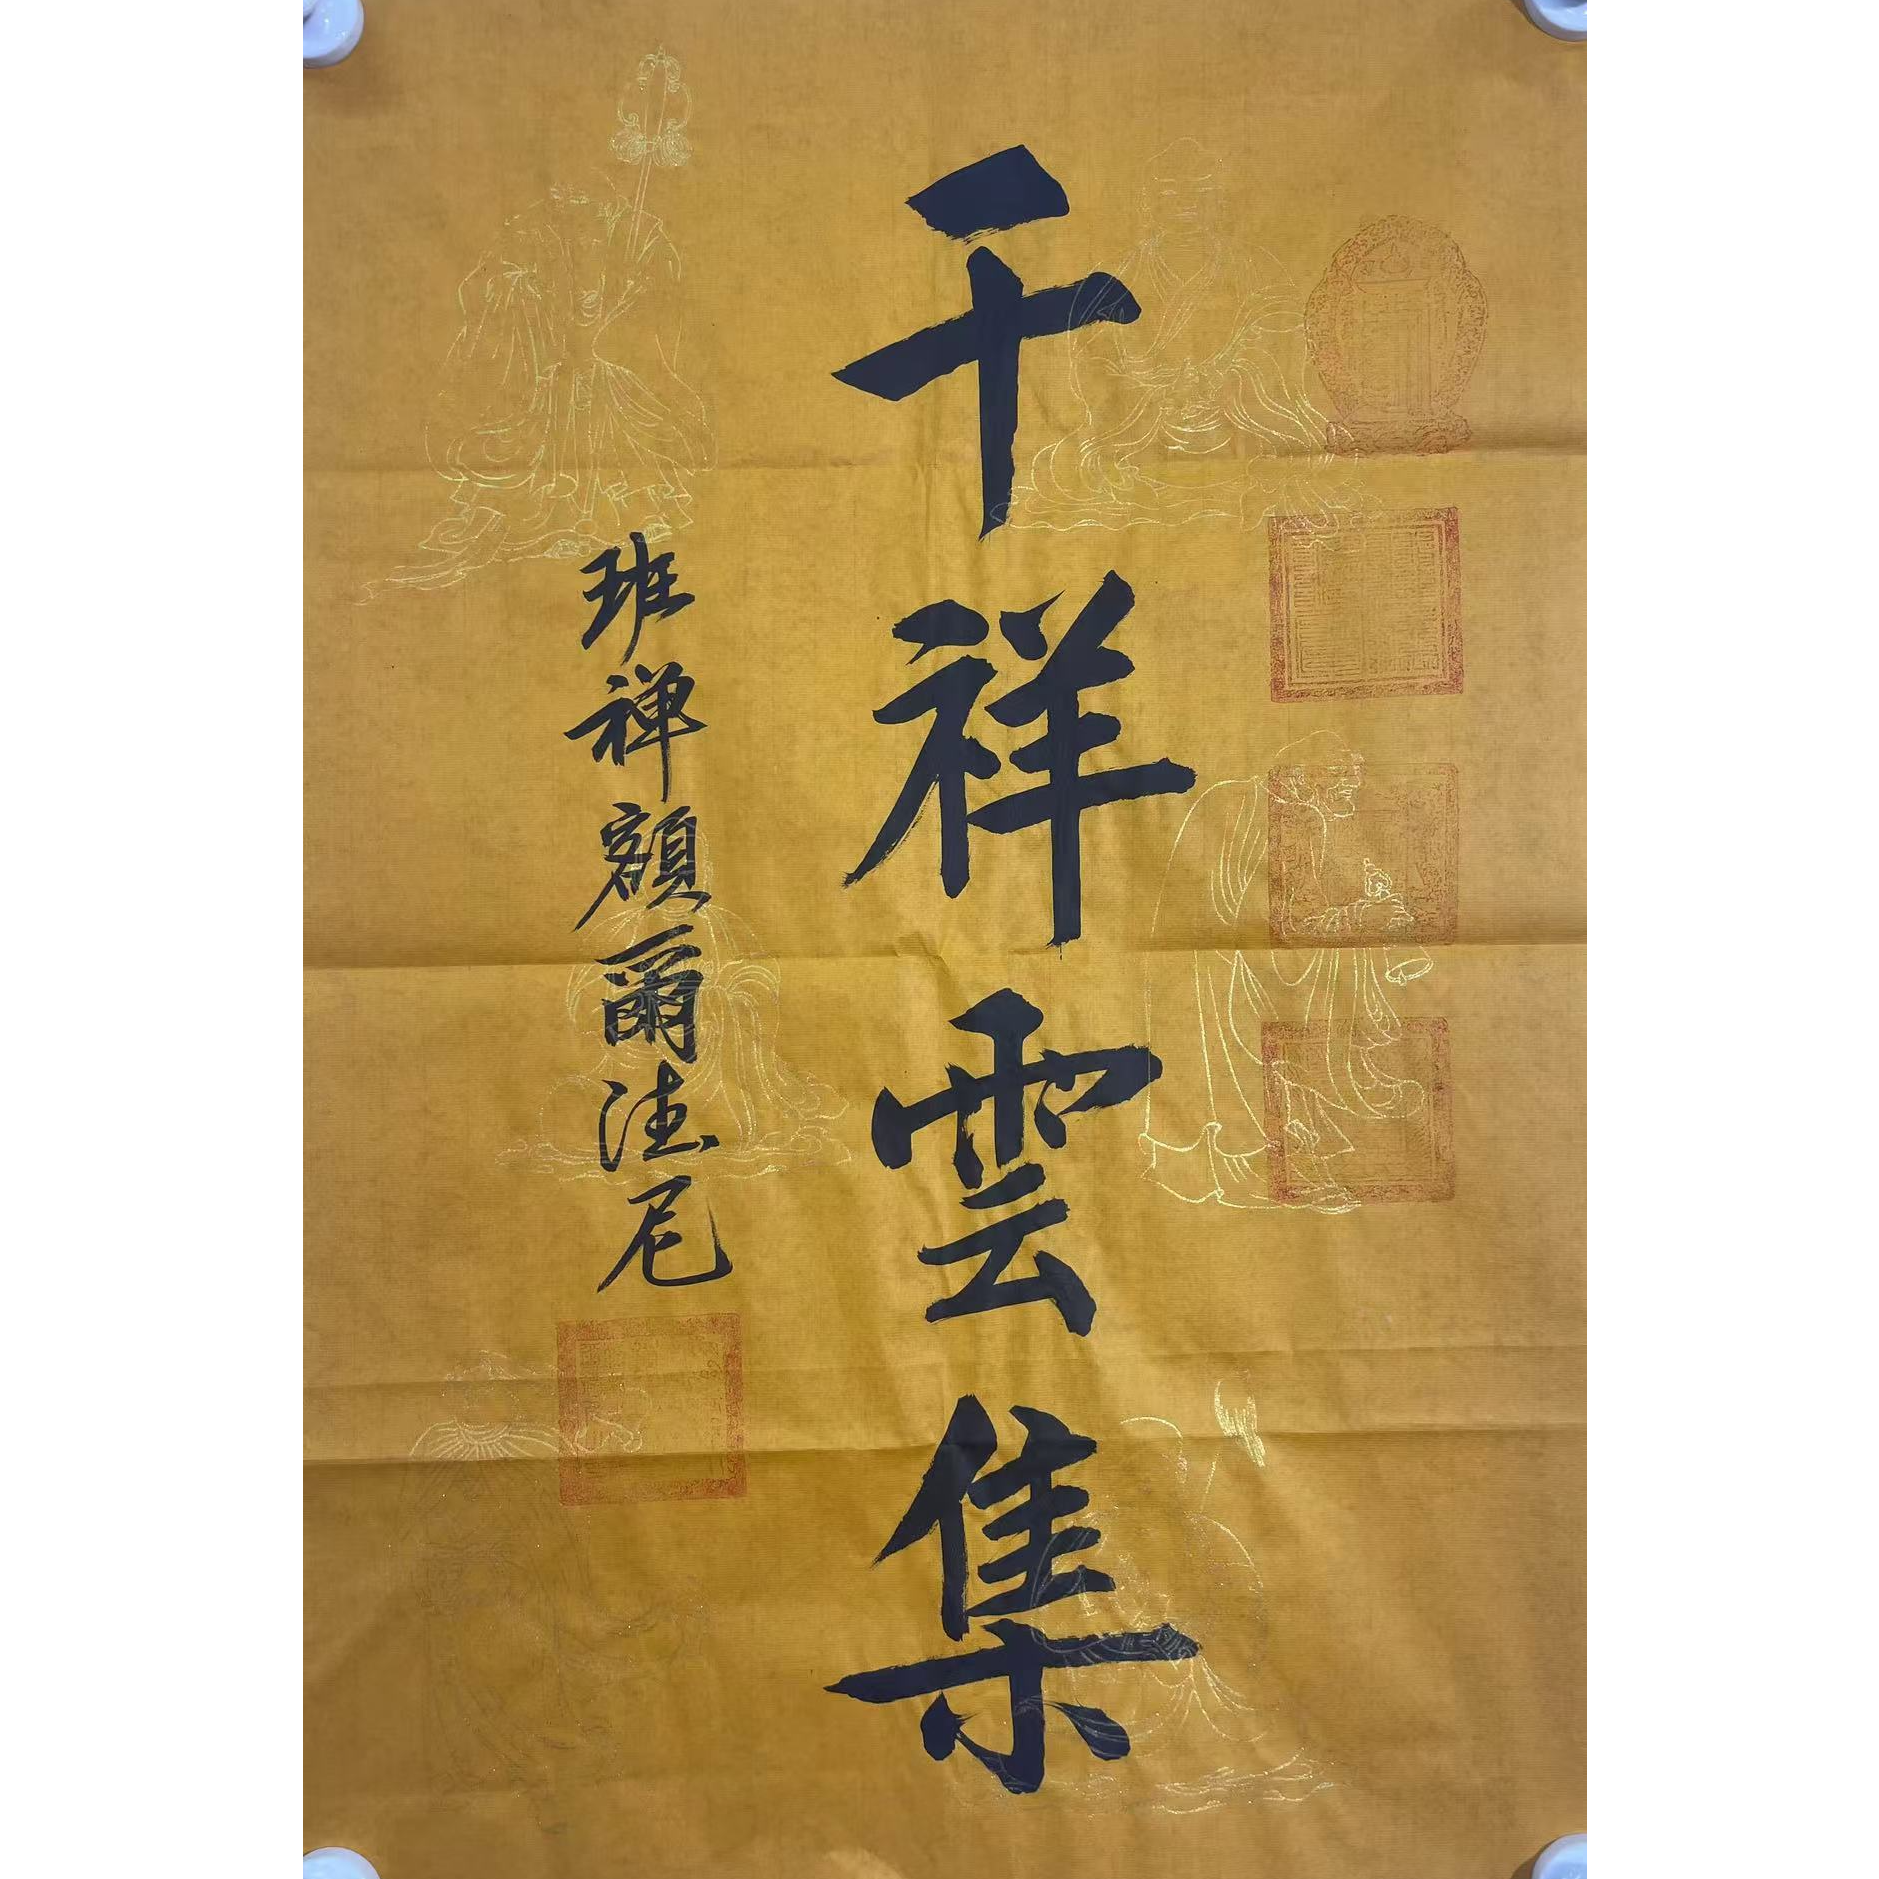 千祥雲集
班禅額爾德尼